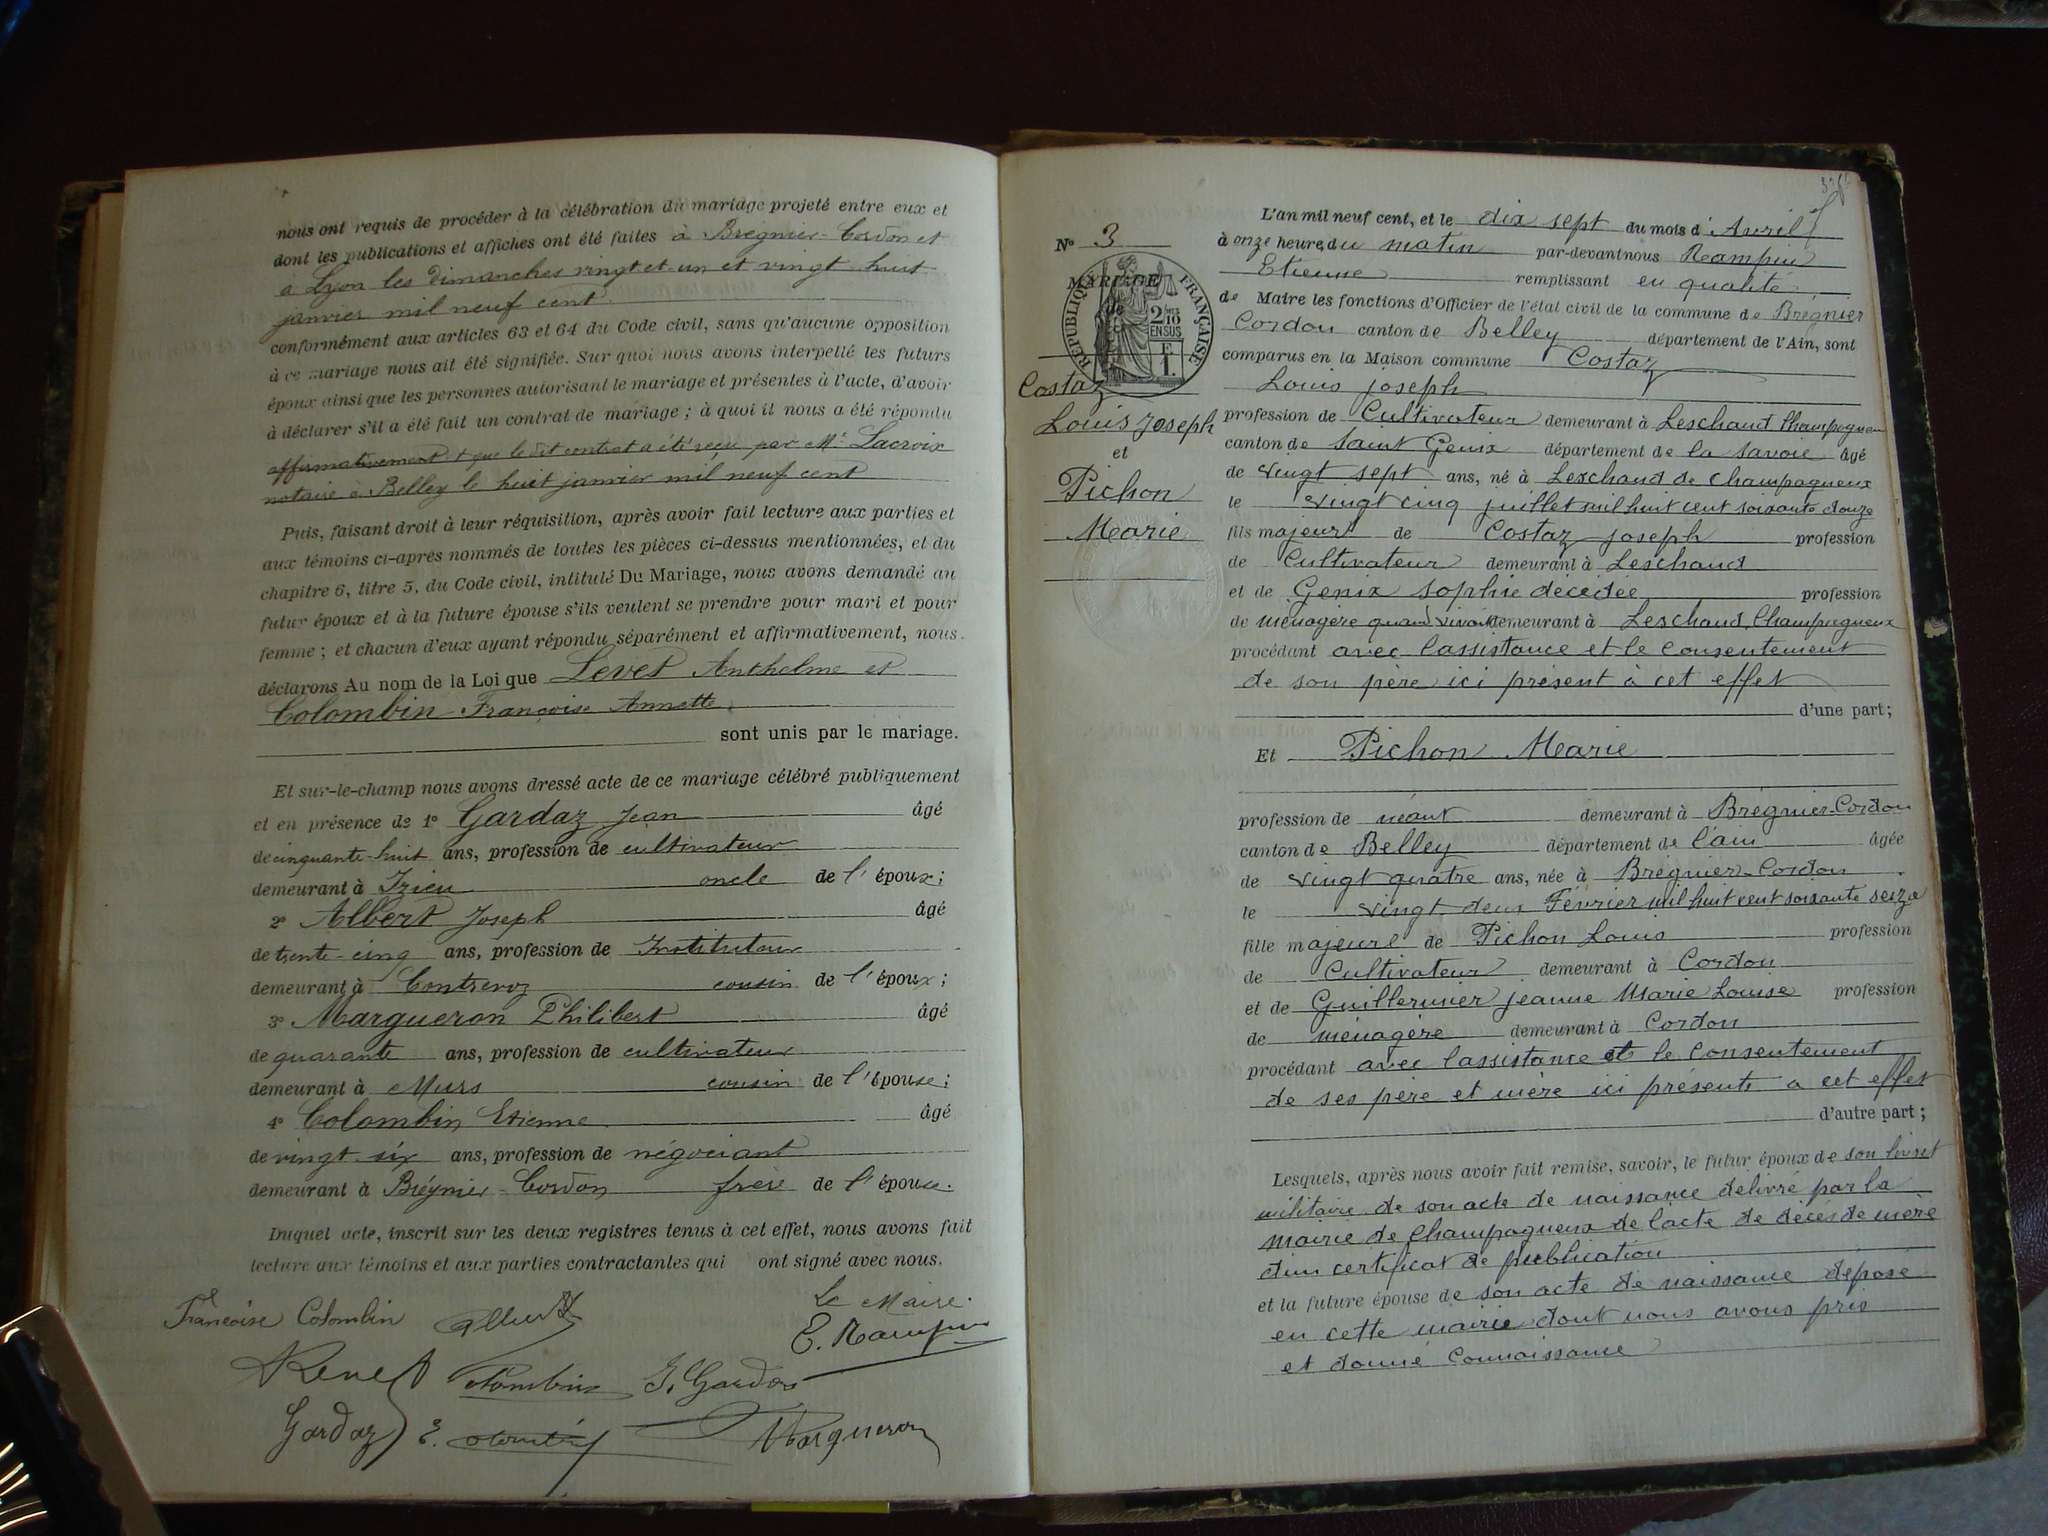 nous ont requis de procéder à la célébration du mariage projeté entre eux et
dont les publications et affiches ont été faites à Brégnier-Cordon et
à Lyon les dimanches vingt et un et vingt huit
janvier mil neuf cent
conformément aux articles 63 et 64 du Code civil, sans qu'aucune opposition
à ce mariage nous ait été signifiée. Sur quoi nous avons interpellé les futurs
époux ainsi que les personnes autorisant le mariage et présentes à l'acte, d'avoir
à déclarer s'il a été fait un contrat de mariage ; à quoi il nous a été répondu
affirmativement & que le dit contrat a été reçu par Me Lacroix
notaire à Belley le huit janvier mil neuf cent
Puis, faisant droit à leur réquisition, après avoir fait lecture aux parties et
aux témoins ci-après nommés de toutes les pièces ci-dessus mentionnées, et du
chapitre 6, titre 5, du Code civil, intitulé Du Mariage, nous avons demandé au
futur époux et à la future épouse s'ils veulent se prendre pour mari et pour
femme ; et chacun d'eux ayant répondu séparément et affirmativement, nous
déclarons Au nom de la Loi que Levet Anthelme et
Colombin Françoise Annette
sont unis par le mariage.
Et sur-le-champ nous avons dressé acte de ce mariage célébré publiquement
et en présence de 1° Gardaz Jean âgé
de cinquante-huit ans, profession de cultivateur
demeurant à Izieu oncle de l'époux ;
2° Albert Joseph âgé
de trente-cinq ans, profession de Instituteur
demeurant à Contrevoz cousin de l'époux ;
3° Margueron Philibert âgé
de quarante ans, profession de cultivateur
demeurant à Murs cousin de l'épouse ;
4° Colombin Etienne âgé
de vingt-six ans, profession de négociant
demeurant à Brégnier-Cordon frère de l'épouse.
Duquel acte, inscrit sur les deux registres tenus à cet effet, nous avons fait
lecture aux témoins et aux parties contractantes qui ont signé avec nous.
Françoise Colombin Albert Le Maire
E. Rampin
Colombin J. Gardaz
Gardaz Margueron
N° 3
MARIAGE
de
RÉPUBLIQUE FRANÇAISE
2/10 EN SUS
Costaz
Louis Joseph
et
Pichon
Marie
L'an mil neuf cent, et le dix sept du mois d'Avril
à onze heures du matin par-devant nous Rampin
Etienne remplissant en qualité
de Maire les fonctions d'Officier de l'état civil de la commune de Brégnier
Cordon canton de Belley département de l'Ain, sont
comparus en la Maison commune Costaz
Louis joseph
profession de Cultivateur demeurant à Leschaud Champagneux
canton de Saint Genix département de la Savoie âgé
de vingt sept ans, né à Leschaud de Champagneux
le vingt cinq juillet mil huit cent soixante douze
fils majeur de Costaz joseph profession
de Cultivateur demeurant à Leschaud
et de Genix Sophie décédée profession
de ménagère quand vivait demeurant à Leschaud Champagneux
procédant avec l'assistance et le consentement
de son père ici présent à cet effet
d'une part ;
Et Pichon Marie
profession de néant demeurant à Brégnier-Cordon
canton de Belley département de l'ain âgée
de vingt quatre ans, née à Brégnier-Cordon
le vingt deux Février mil huit cent soixante seize
fille majeure de Pichon Louis profession
de Cultivateur demeurant à Cordon
et de Guillermier jeanne Marie Louise profession
de ménagère demeurant à Cordon
procédant avec l'assistance et le consentement
de ses père et mère ici présents à cet effet
d'autre part ;
Lesquels, après nous avoir fait remise, savoir, le futur époux de son livret
militaire de son acte de naissance délivré par la
mairie de Champagneux de l'acte de décès de mère
d'un certificat de publication
et la future épouse de son acte de naissance déposé
en cette mairie dont nous avons pris
et donné connaissance